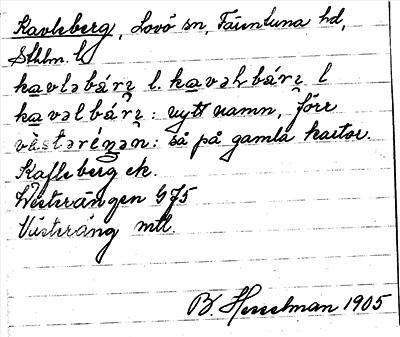 Kavleberg, Lovö sn, Färentuna hd,
Sthlm. l
ka̲vləbárɛ̨ l. ka̲vəlbárɛ̨ l
ka̲vəlbárɛ̨: nytt namn, förr
västəréŋən: så på gamla kartor.
Kafleberg ek.
Westerängen GJ5
Västeräng mtl.
B. Hesselman 1905